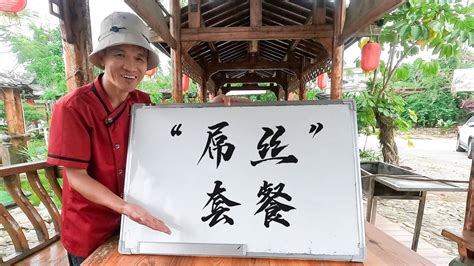 “屌丝”
套餐